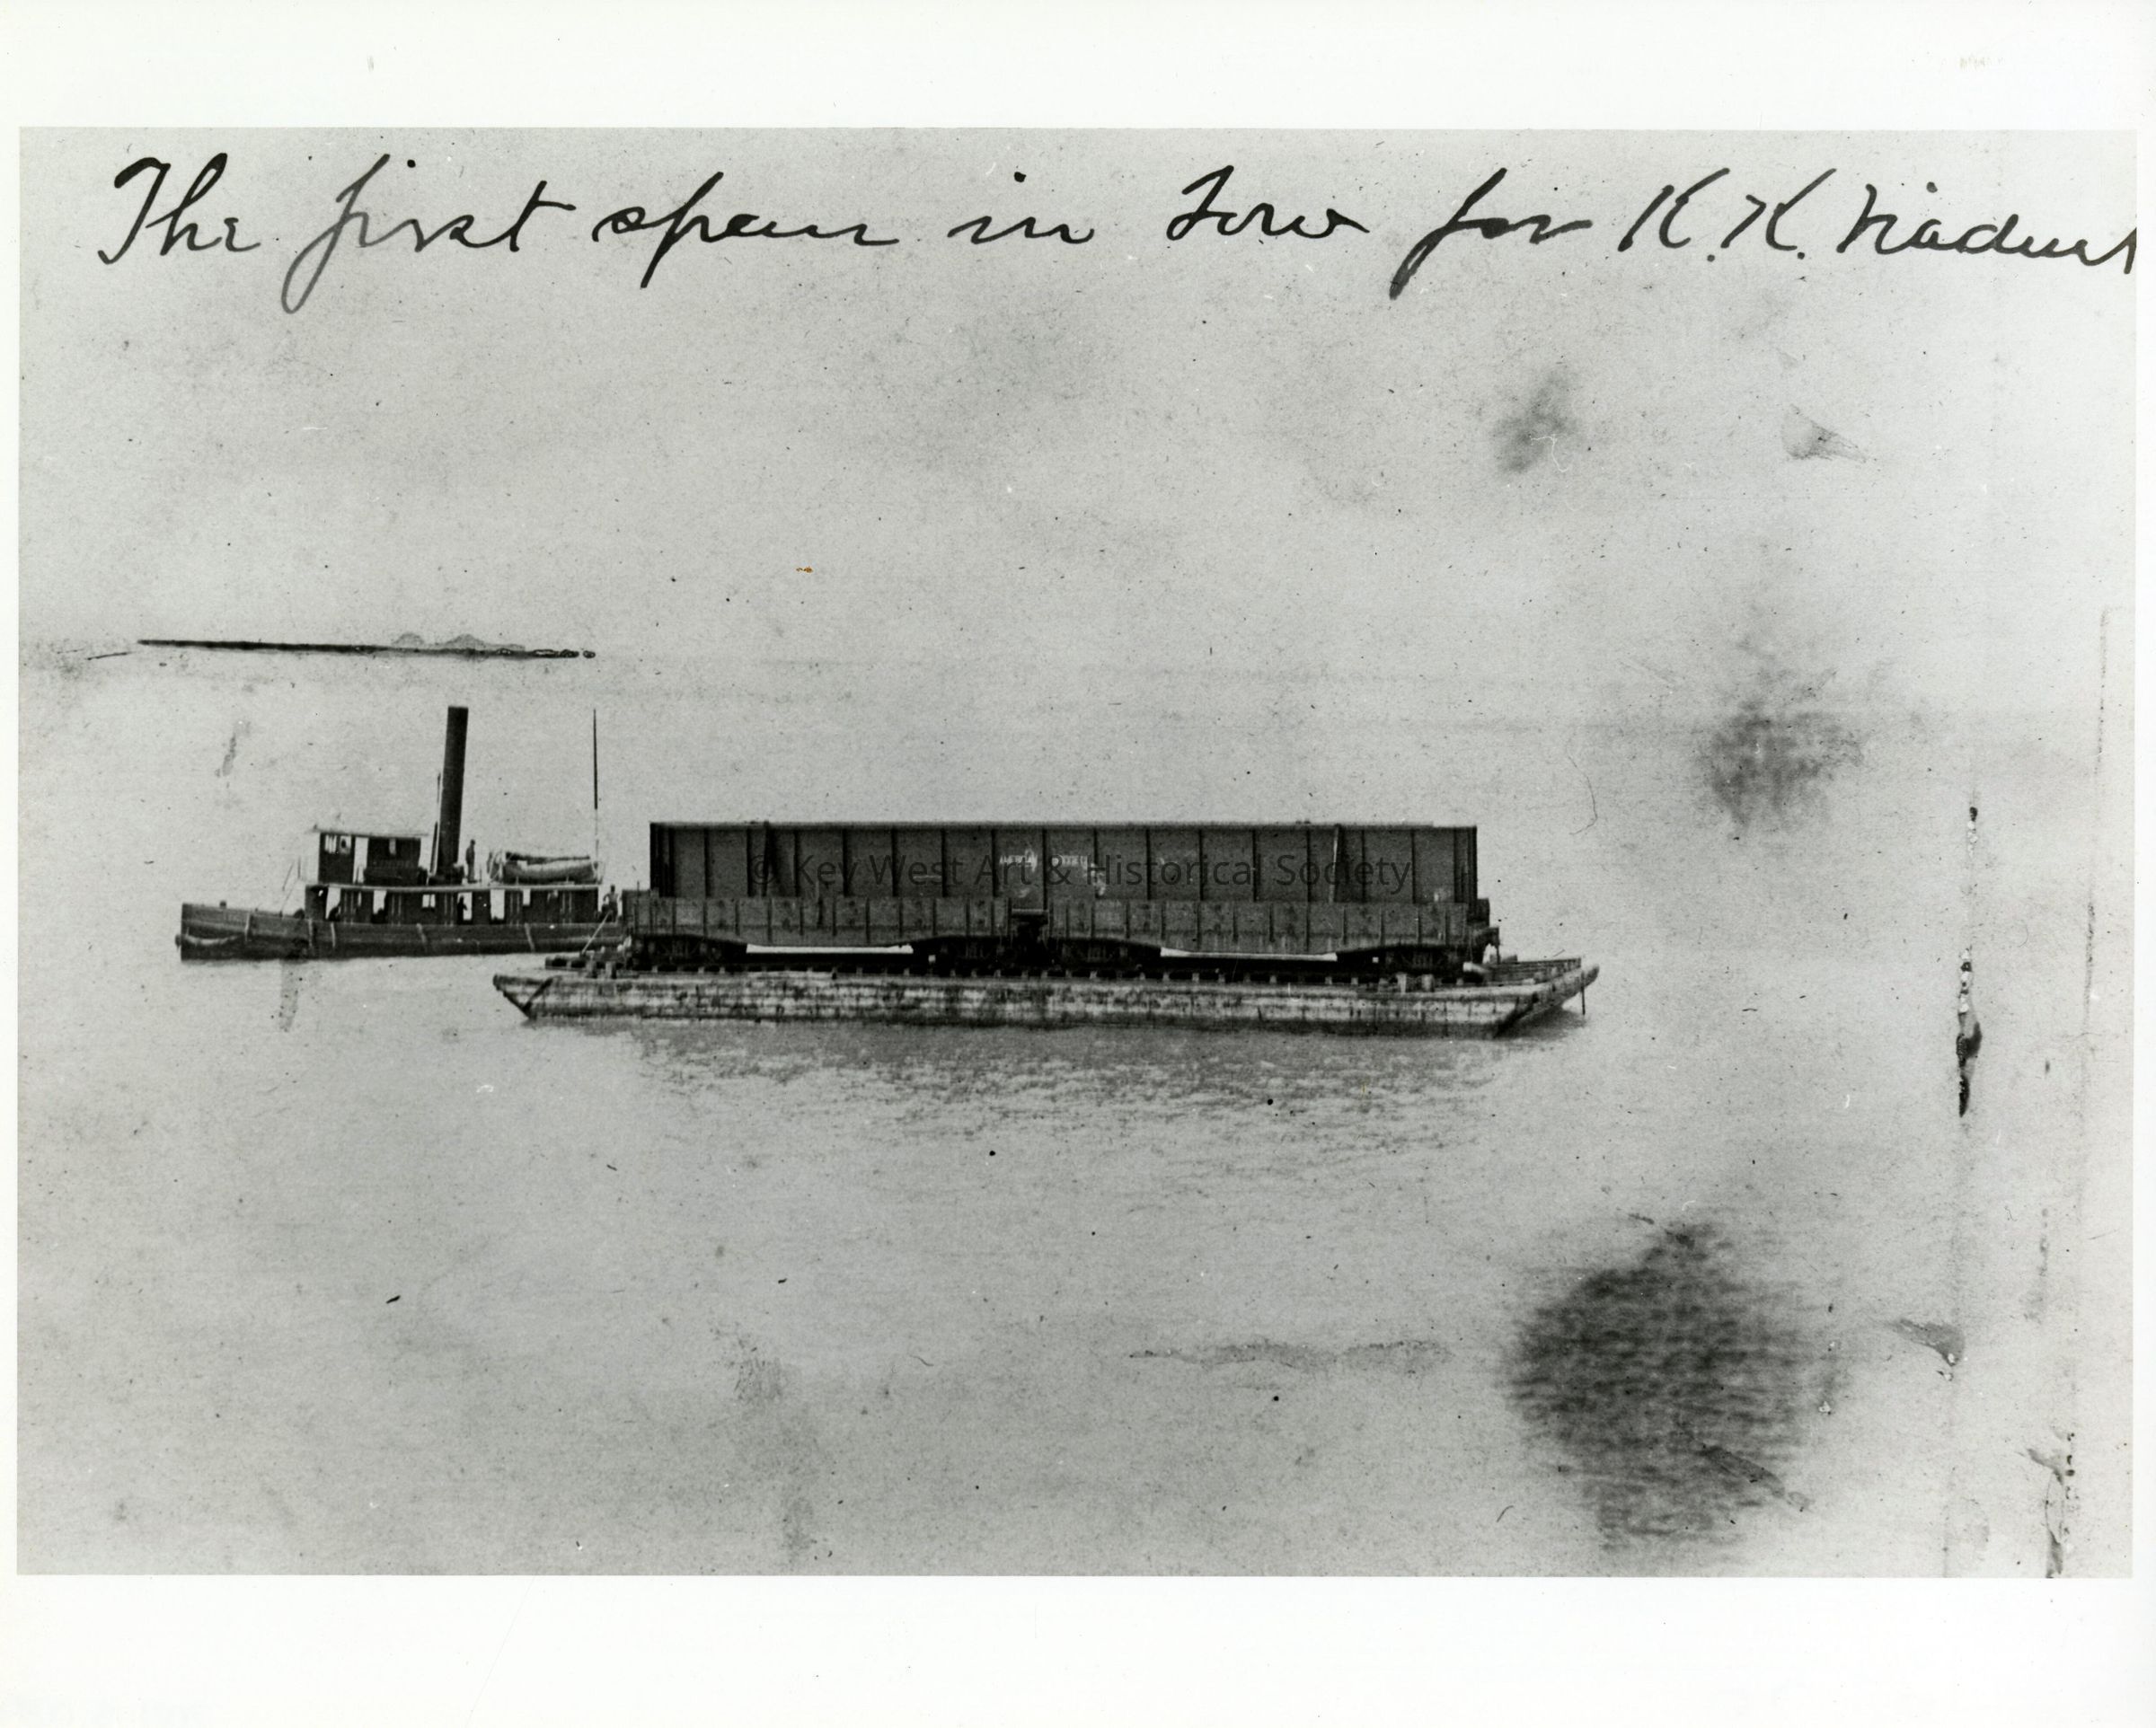 The first span in tow for K.K. Viaduct
© Key West Art & Historical Society